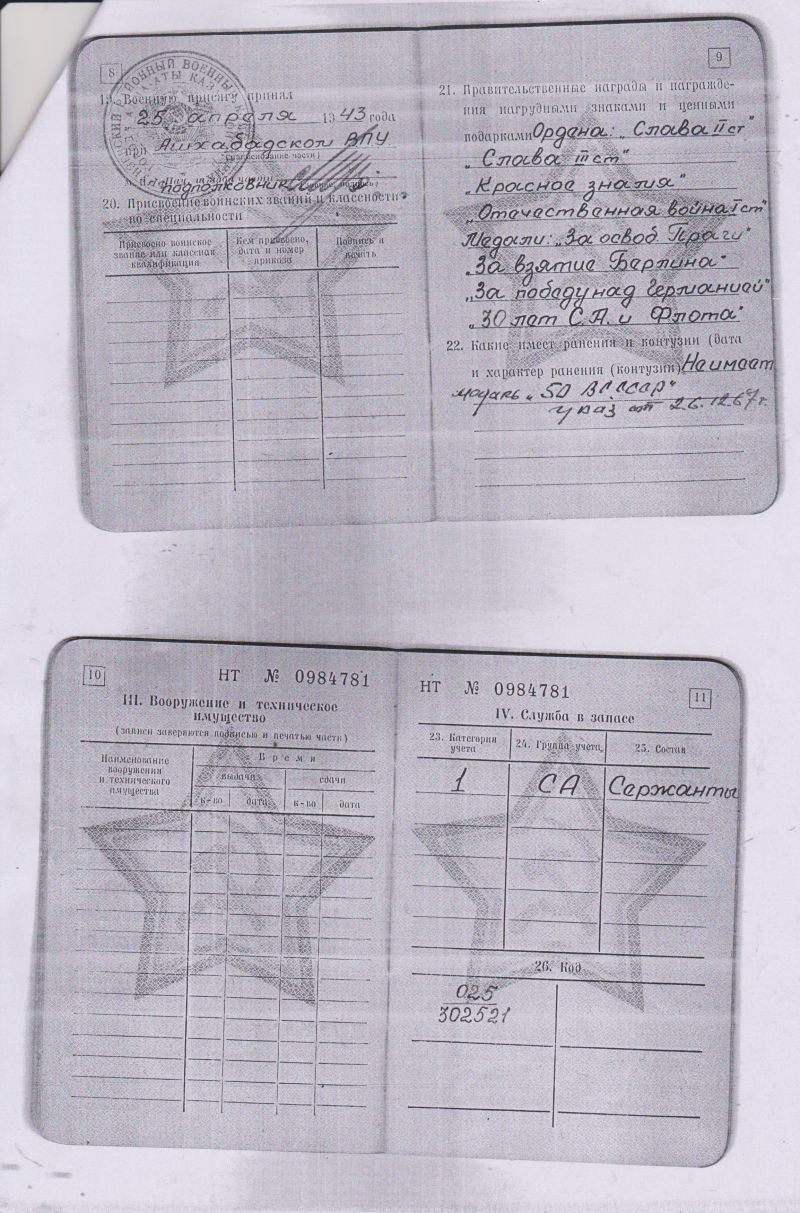 8
19. Военную присягу принял
25 апреля 1943 года
при Ашхабадском ВПУ
(наименование части)
подполковник
20. Присвоение воинских званий и классности
по специальности
Присвоено воинское звание или классная квалификация
Кем присвоено, дата и номер приказа
Подпись и печать
9
21. Правительственные награды и награжде-
ния нагрудными знаками и ценными
подарками Ордена: „Слава II ст"
„Слава III ст"
„Красное знамя"
„Отечественная война I ст"
Медали: „За освоб. Праги"
„За взятие Берлина"
„За победу над Германией"
„30 лет С.А. и Флота"
22. Какие имеет ранения и контузии (дата
и характер ранения (контузии) Не имеет
медаль „50 ВС СССР"
указ от 26.12.67г.
10
НТ № 0984781
III. Вооружение и техническое
имущество
(записи заверяются подписью и печатью части)
Наименование вооружения и технического имущества
Время
выдачи
сдачи
к-во
дата
к-во
дата
НТ № 0984781
11
IV. Служба в запасе
23. Категория учета
24. Группа учета
25. Состав
1
СА
Сержанты
26. Код
025
302521